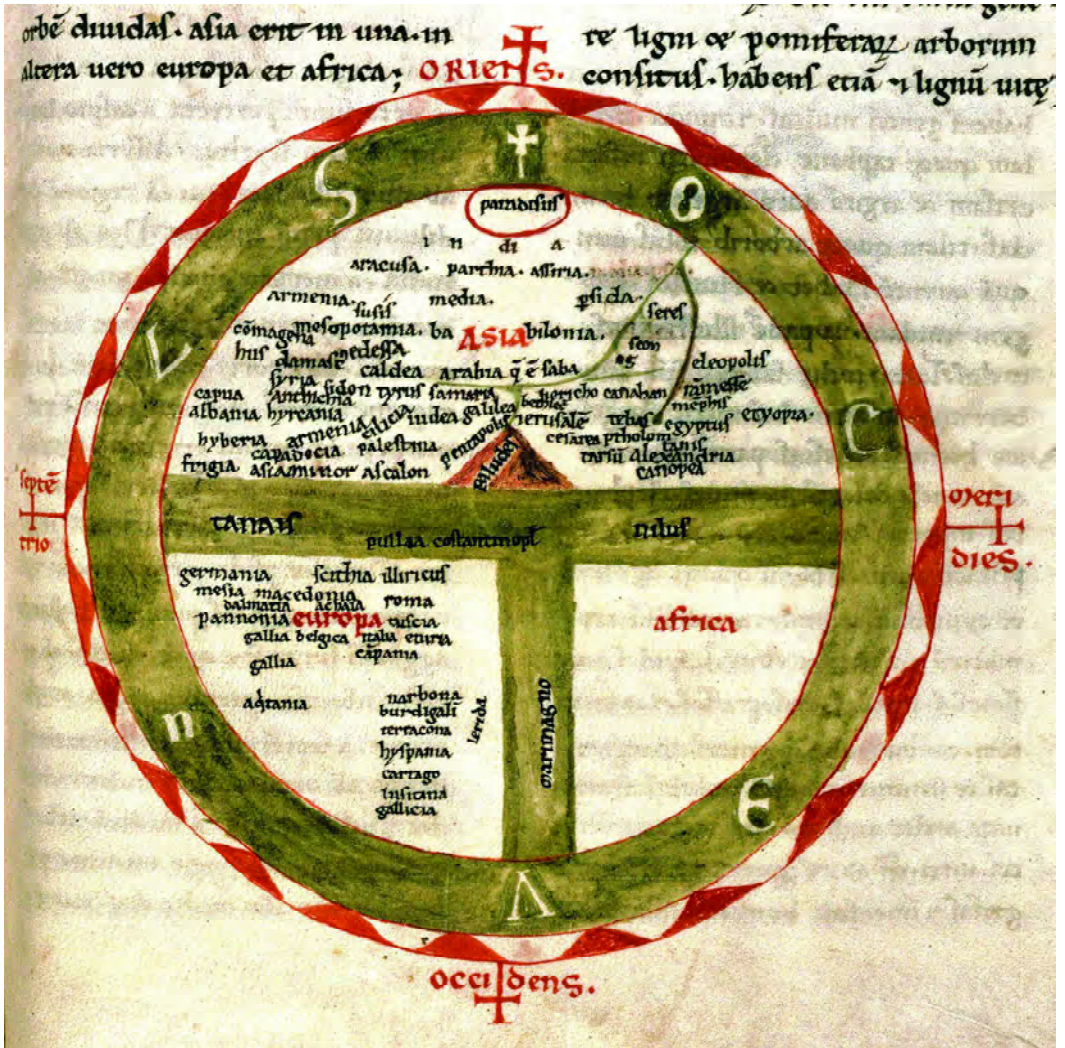 orbē diuidas. asia erit in una. in
altera uero europa et africa;
re ligni & pomiferaꝝ arborum
consitus. habens etiā & lignū uitę
ORIENS.
S
O
L
C
n
E
V
paradisus
in di a
aracusa. parthia. assiria.
armenia. media. psida.
susis
seres
cōmagena mesopotamia. ba ASIA bilonia.
hus damasc edessa
seon
og
eleopolis
caldea arabia q̄ ē saba
syria
anthichia sidon tyrus samaria
hiericho canahan
ramesse
mephis
capua
albania hyrcania
cilicia iudea galilea
bethleē
ierusalē
egyptus etyopia.
hyberia armenia
palestina pentapolis
cesarea ptholom
tanis
capadocia
tarsū Alexandria
frigia. asiaminor ascalon
paludes
canopea
septē
trio
meri
dies.
tanais
pullia costantinopl
nilus
germania scithia illiricus
mesia macedonia
dalmatia achaia roma
pannonia europa tuscia
africa
gallia belgica italia eturia
cāpania
gallia
aq̇tania
narbona
burdigalī
terracona
lerida
hyspania
cartago
lusitana
gallicia
marimagno
occidens.